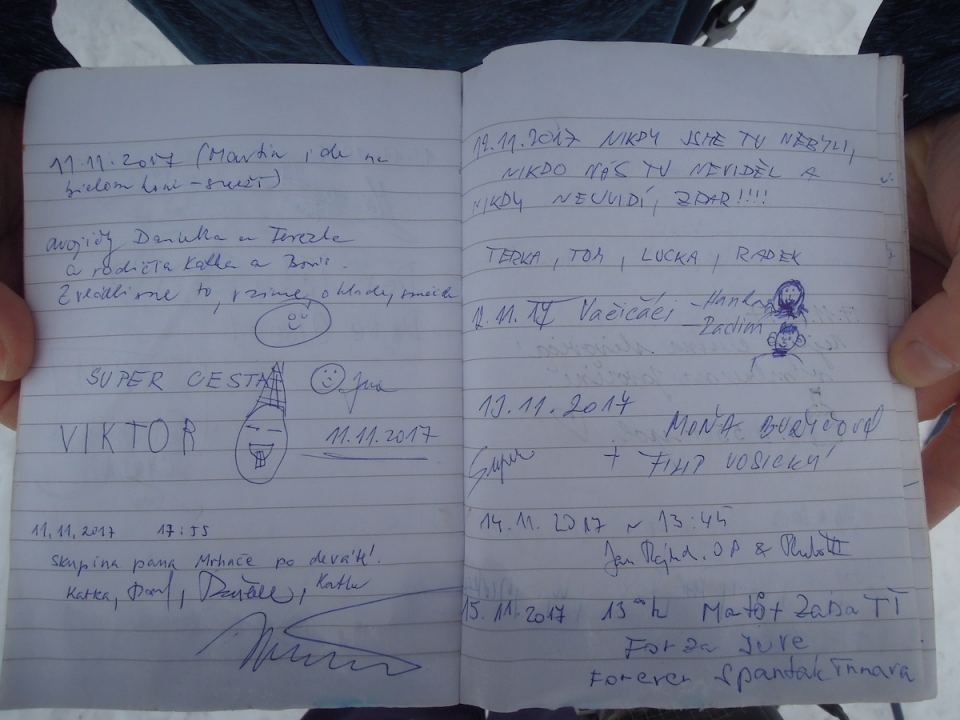 11.11.2017 (Martin ide na
bielom koni -
Danulka a Terezka
a rodičia Katka a Boris.
Zvládli sme to, v zime, o hlade, smäde
SUPER CESTA
VIKTOR
11.11.2017
11.11.2017 17:55
Skupina pana Mrhače po deváté!
Katka, Katka
12.11.2017 NIKDY JSME TU NEBYLI,
NIKDO NÁS TU NEVIDĚL A
NIKDY NEUVIDÍ, ZDAR!!!!
TERKA, TOM, LUCKA, RADEK
12.11.17 Vačičáci - Hanka
- Radim
13.11.2017
MOŇA
Super + FILIP VOSICKÝ
14.11.2017 ~ 13:45
Jan
15.11.2017 13 h Maťo + Zaba TT
Forza Juve
Forever Spartak Trnava